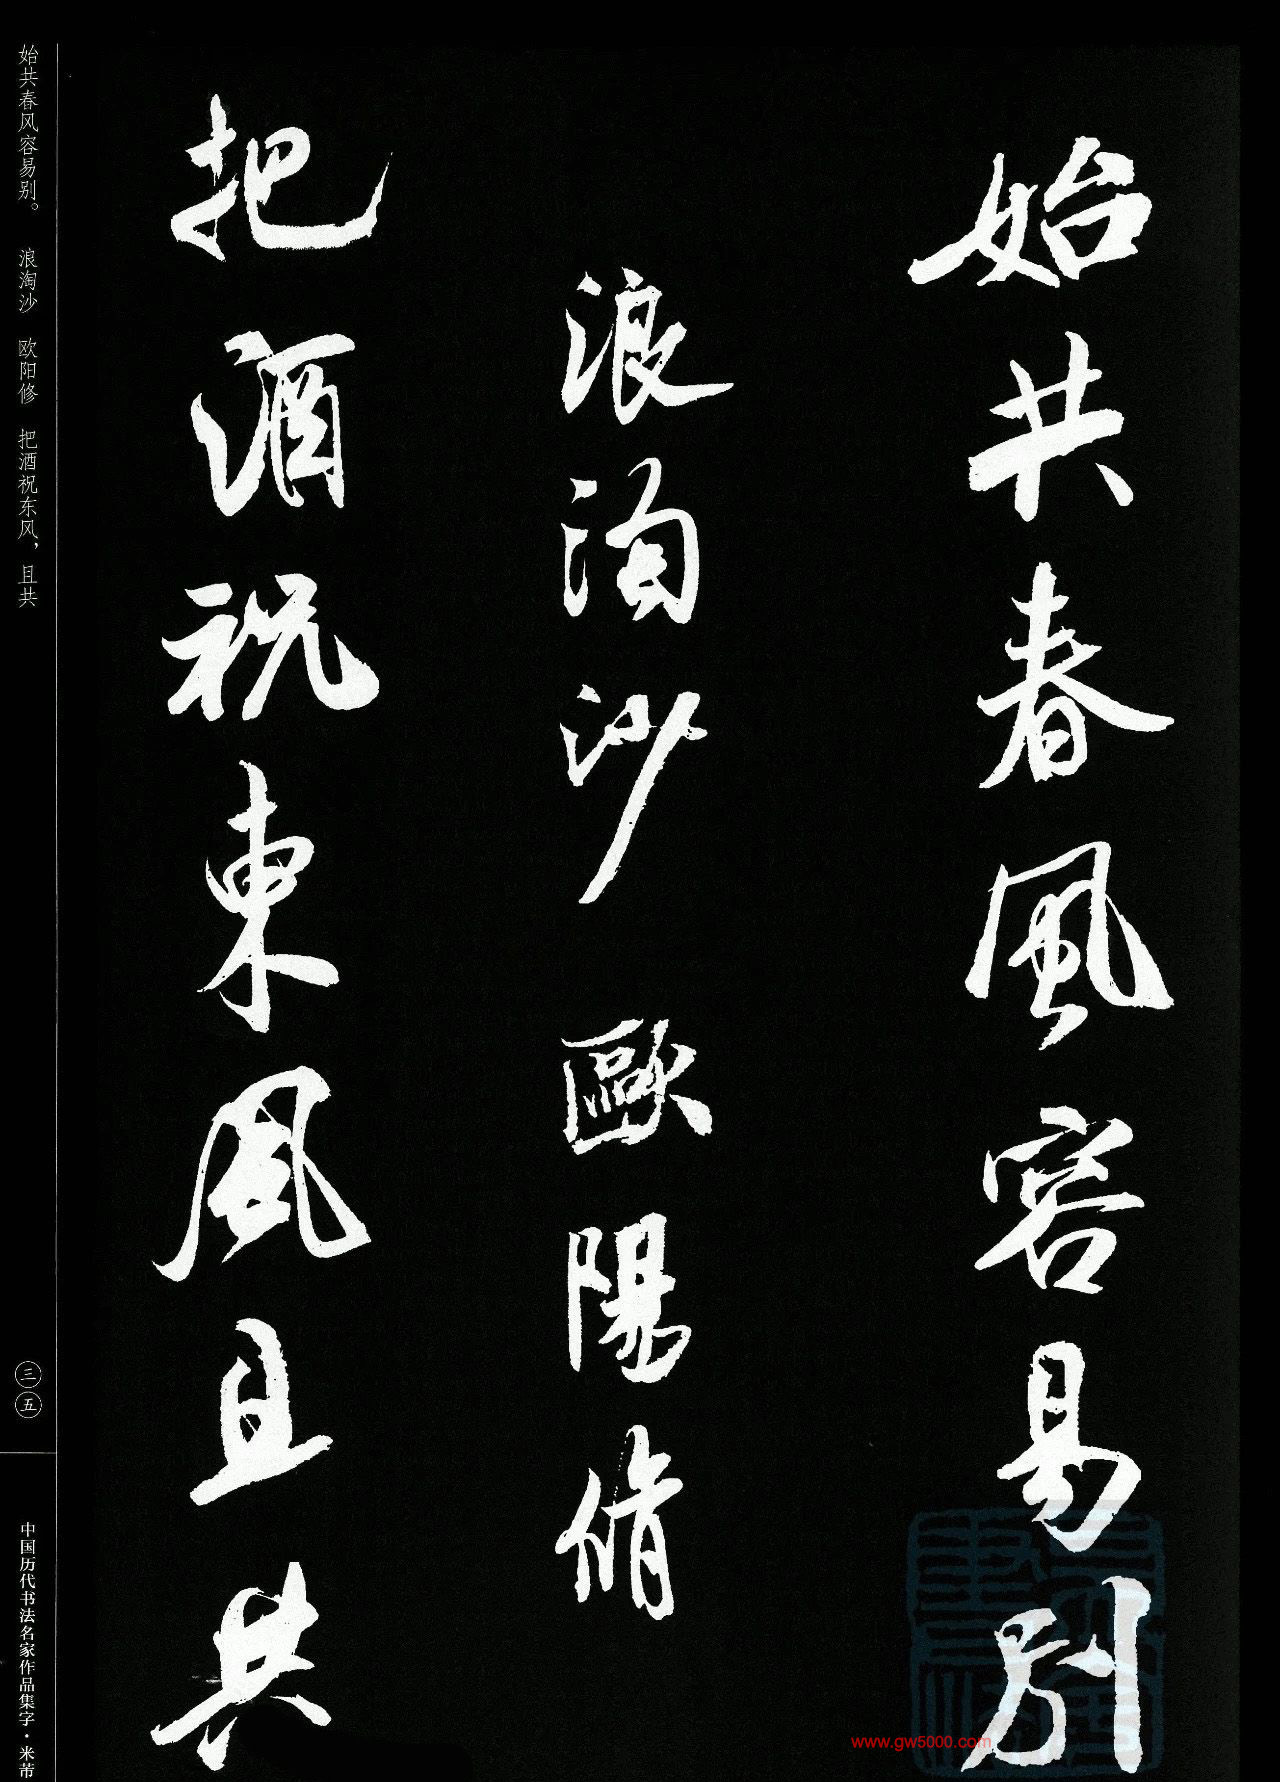 始共春風容易别
浪淘沙 歐陽脩
把酒祝東風且共
始共春风容易别。 浪淘沙 欧阳修 把酒祝东风，且共
三五
中国历代书法名家作品集字·米芾
www.gw5000.com